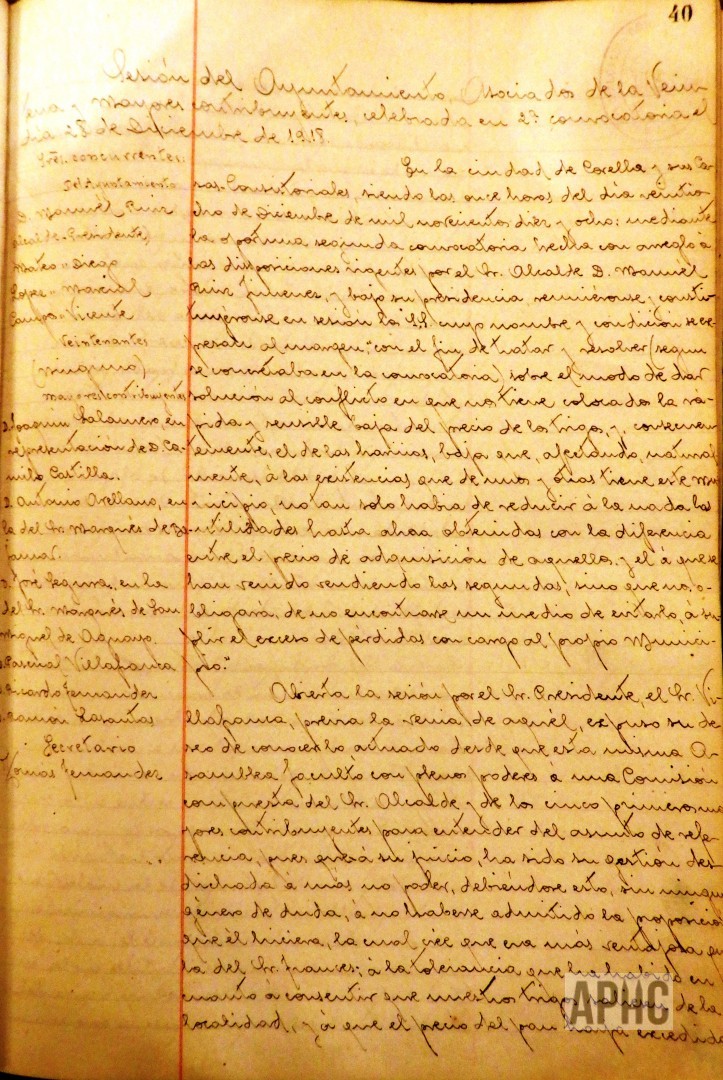 40
Sesión del Ayuntamiento, Asociados de la Vein-
tena y Mayores contribuyentes, celebrada en 2ª convocatoria el
día 28 de Diciembre de 1918.
Sres. concurrentes:
Del Ayuntamiento
D. Manuel Ruiz
(Alcalde-Presidente)
Mateo " Diego
Lopez " Marcial
Campos " Vicente
Veintenantes
(ninguno)
Mayores contribuyentes
D. Joaquin Salamero, en
representación de D. Ca-
milo Castilla.
D. Antonio Arellano, en
la del Sr. Marqués de Ba-
jamar.
D. José Segura, en la
del Sr. Marqués de San
Miguel de Aguayo.
Pascual Villafranca
Ricardo Fernandez
Ramón Rasantas
Secretario
Tomas Fernandez
En la ciudad de Corella y sus Ca-
sas Consistoriales, siendo las once horas del día veintio-
cho de Diciembre de mil novecientos diez y ocho: mediante
la oportuna segunda convocatoria hecha con arreglo á
las disposiciones vigentes por el Sr. Alcalde D. Manuel
Ruiz Jimenez, y bajo su presidencia, reuniéronse y consti-
tuyeronse en sesión los S.S. cuyo nombre y condición se ex-
presan al margen, "con el fin de tratar y resolver (segun
se concretaba en la convocatoria) sobre el modo de dar
solución al conflicto en que nos tiene colocados la rá-
pida y sensible baja del precio de los trigos, y, consecuen-
temente, el de las harinas, baja que, afectando, natural-
mente, á las existencias que de unos y otras tiene este Mu-
nicipio, no tan solo habia de reducir á la nada las
utilidades hasta ahora obtenidas con la diferencia
entre el precio de adquisición de aquellos y el á que se
han venido vendiendo las segundas, sino que nos o-
bligará, de no encontrarse un medio de evitarlo, á su-
plir el exceso de pérdidas con cargo al propio Munici-
pio."
Abierta la sesión por el Sr. Presidente, el Sr. Vi-
llafranca, previa la venia de aquél, expuso su de-
seo de conocer lo actuado desde que esta misma A-
samblea facultó con plenos poderes á una Comisión
compuesta del Sr. Alcalde y de los cinco primeros ma-
yores contribuyentes para entender del asunto de refe-
rencia, pues que á su juicio, ha sido su gestión des-
dichada á más no poder, debiéndose esto, sin ningun
género de duda, á no haberse admitido la proposición
que él hiciera, la cual cree que era más ventajosa que
la del Sr. Frances; á la tolerancia que ha habido en
cuanto á consentir que nuestros trigos salieran de la
localidad, y á que el precio del pan haya excedido
APHC